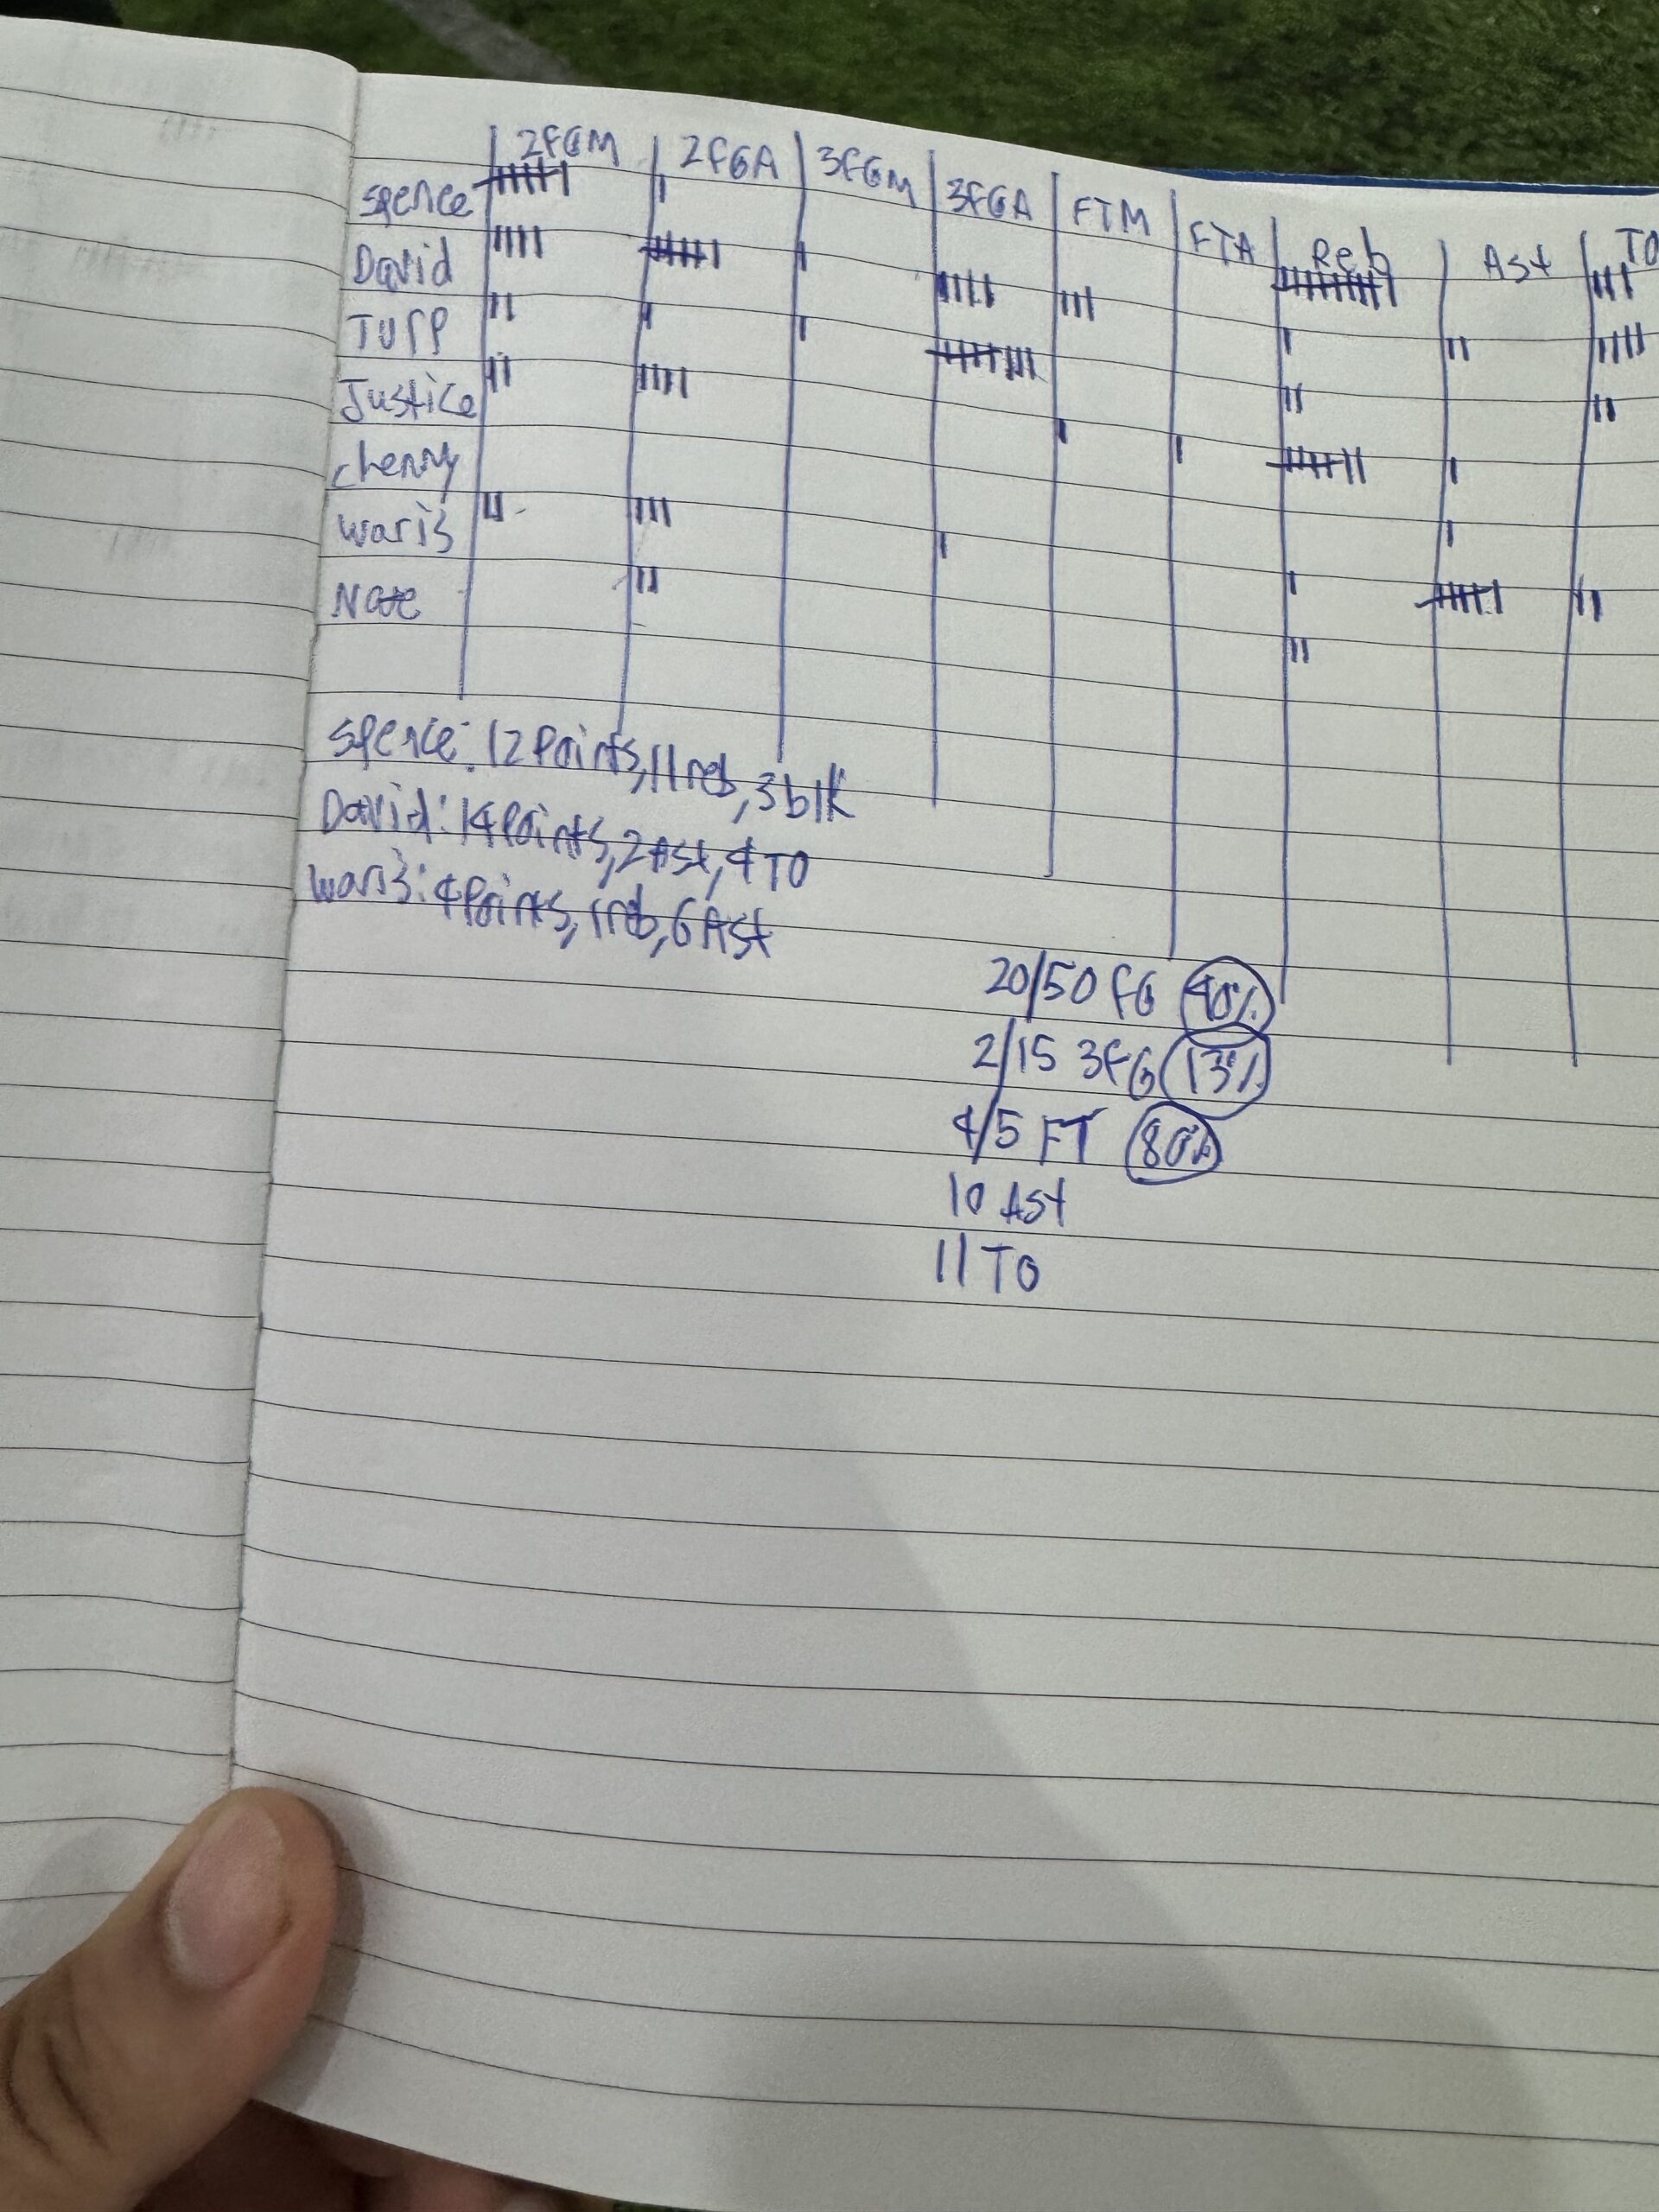 2FGM 2FGA 3FGM 3FGA FTM FTA Reb Ast TO
Spence
David
Tupp
Justice
chenny
waris
Nate
Spence: 12 Points, 11 reb, 3 blk
David: 14 Points, 2 Ast, 4 TO
waris: 4 Points, 1 reb, 6 Ast
20/50 FG 40%
2/15 3FG 13%
4/5 FT 80%
10 Ast
11 TO